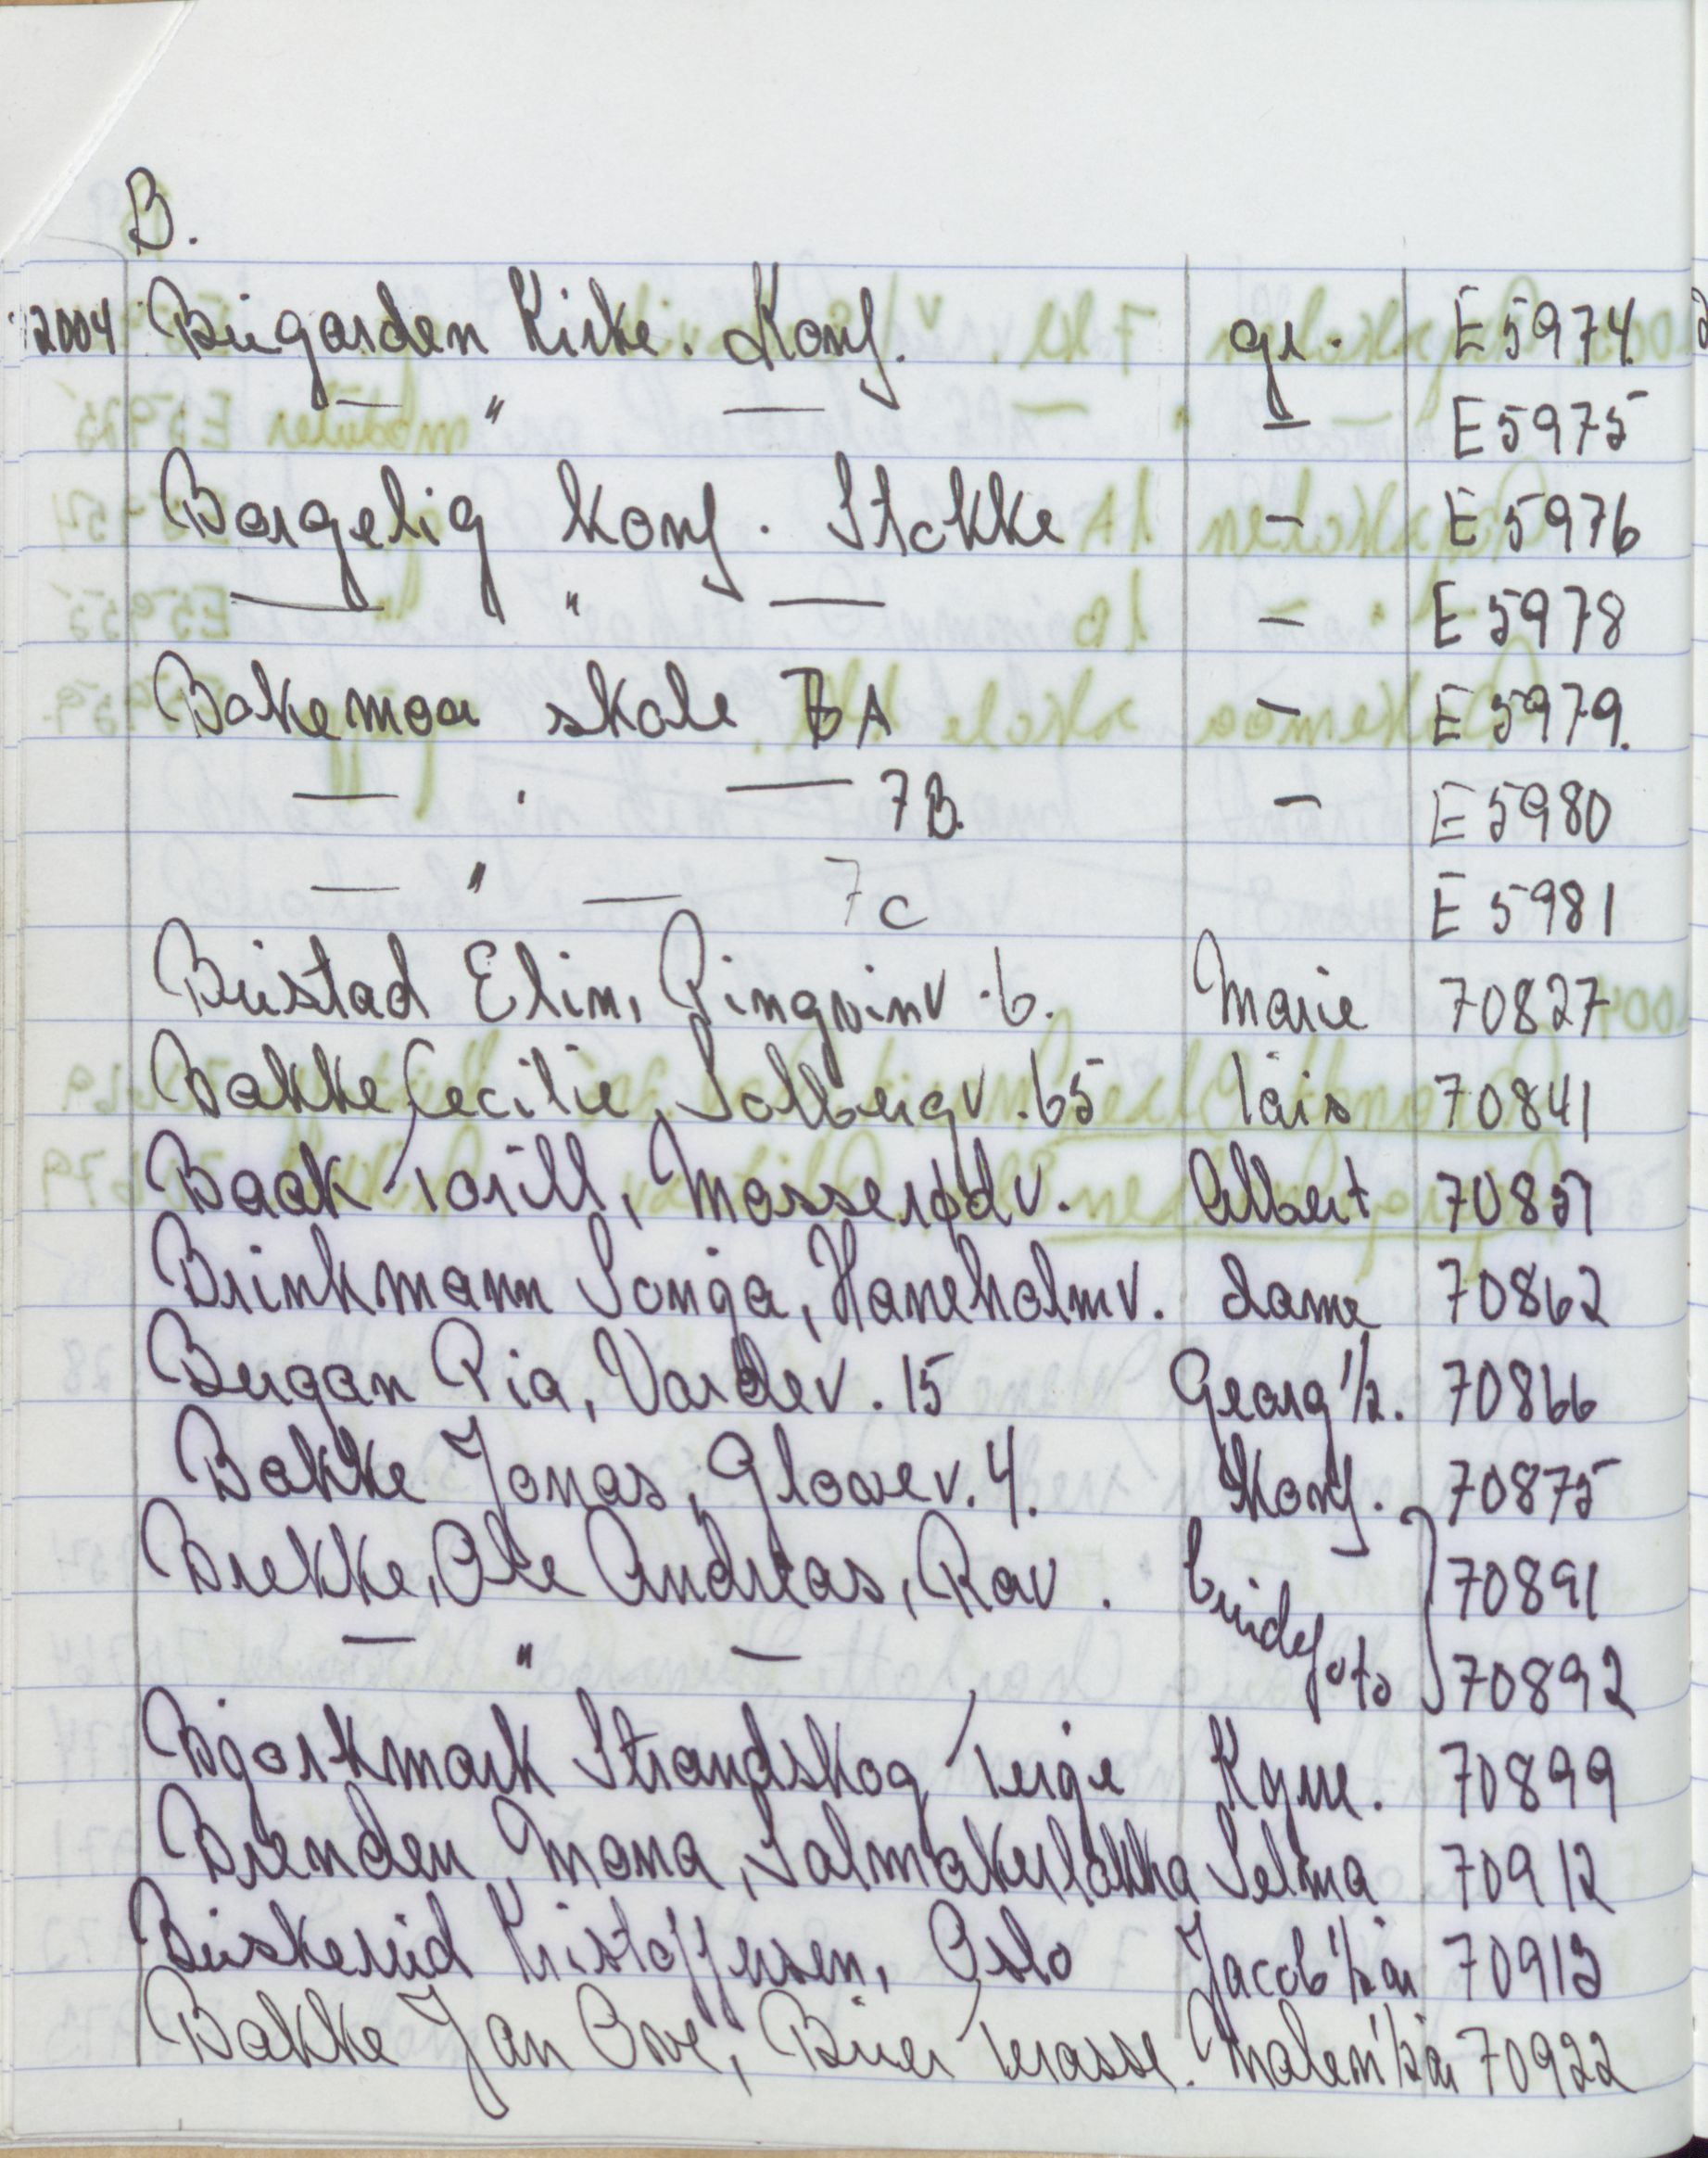 B.
2004 Bugarden Kirke. Konf. gr. E5974.
— " — — E5975
Borgelig Konf. Stokke — E5976
— " — — E5978
Bakemoa skole 7A — E5979.
— " — 7B. — E5980
— " — 7C E5981
Bustad Elin, Pingvinv. 6. Marie 70827
Bakke Cecilie, Solbergv. 65 Lars 70841
Baak Toril, Mosserødv. Albert 70851
Brinkmann Sonja, Haneholmv. dame 70862
Bergan Pia, Vardev. 15 Georg 1/2. 70866
Bakke Jonas, Glosev. 4. Konf. 70875
Brekke, Ole Andreas, Rav. brudefoto 70891
— " — 70892
Bjørkmark Strandskog Terje 70899
Brenden, Mona, Salmakerløkka Selma 70912
Buskerud Kristoffersen, Oslo Jacob 1/2 år 70913
Bakke Jan Ove, Buer Terasse. Malen 1/2 år 70922